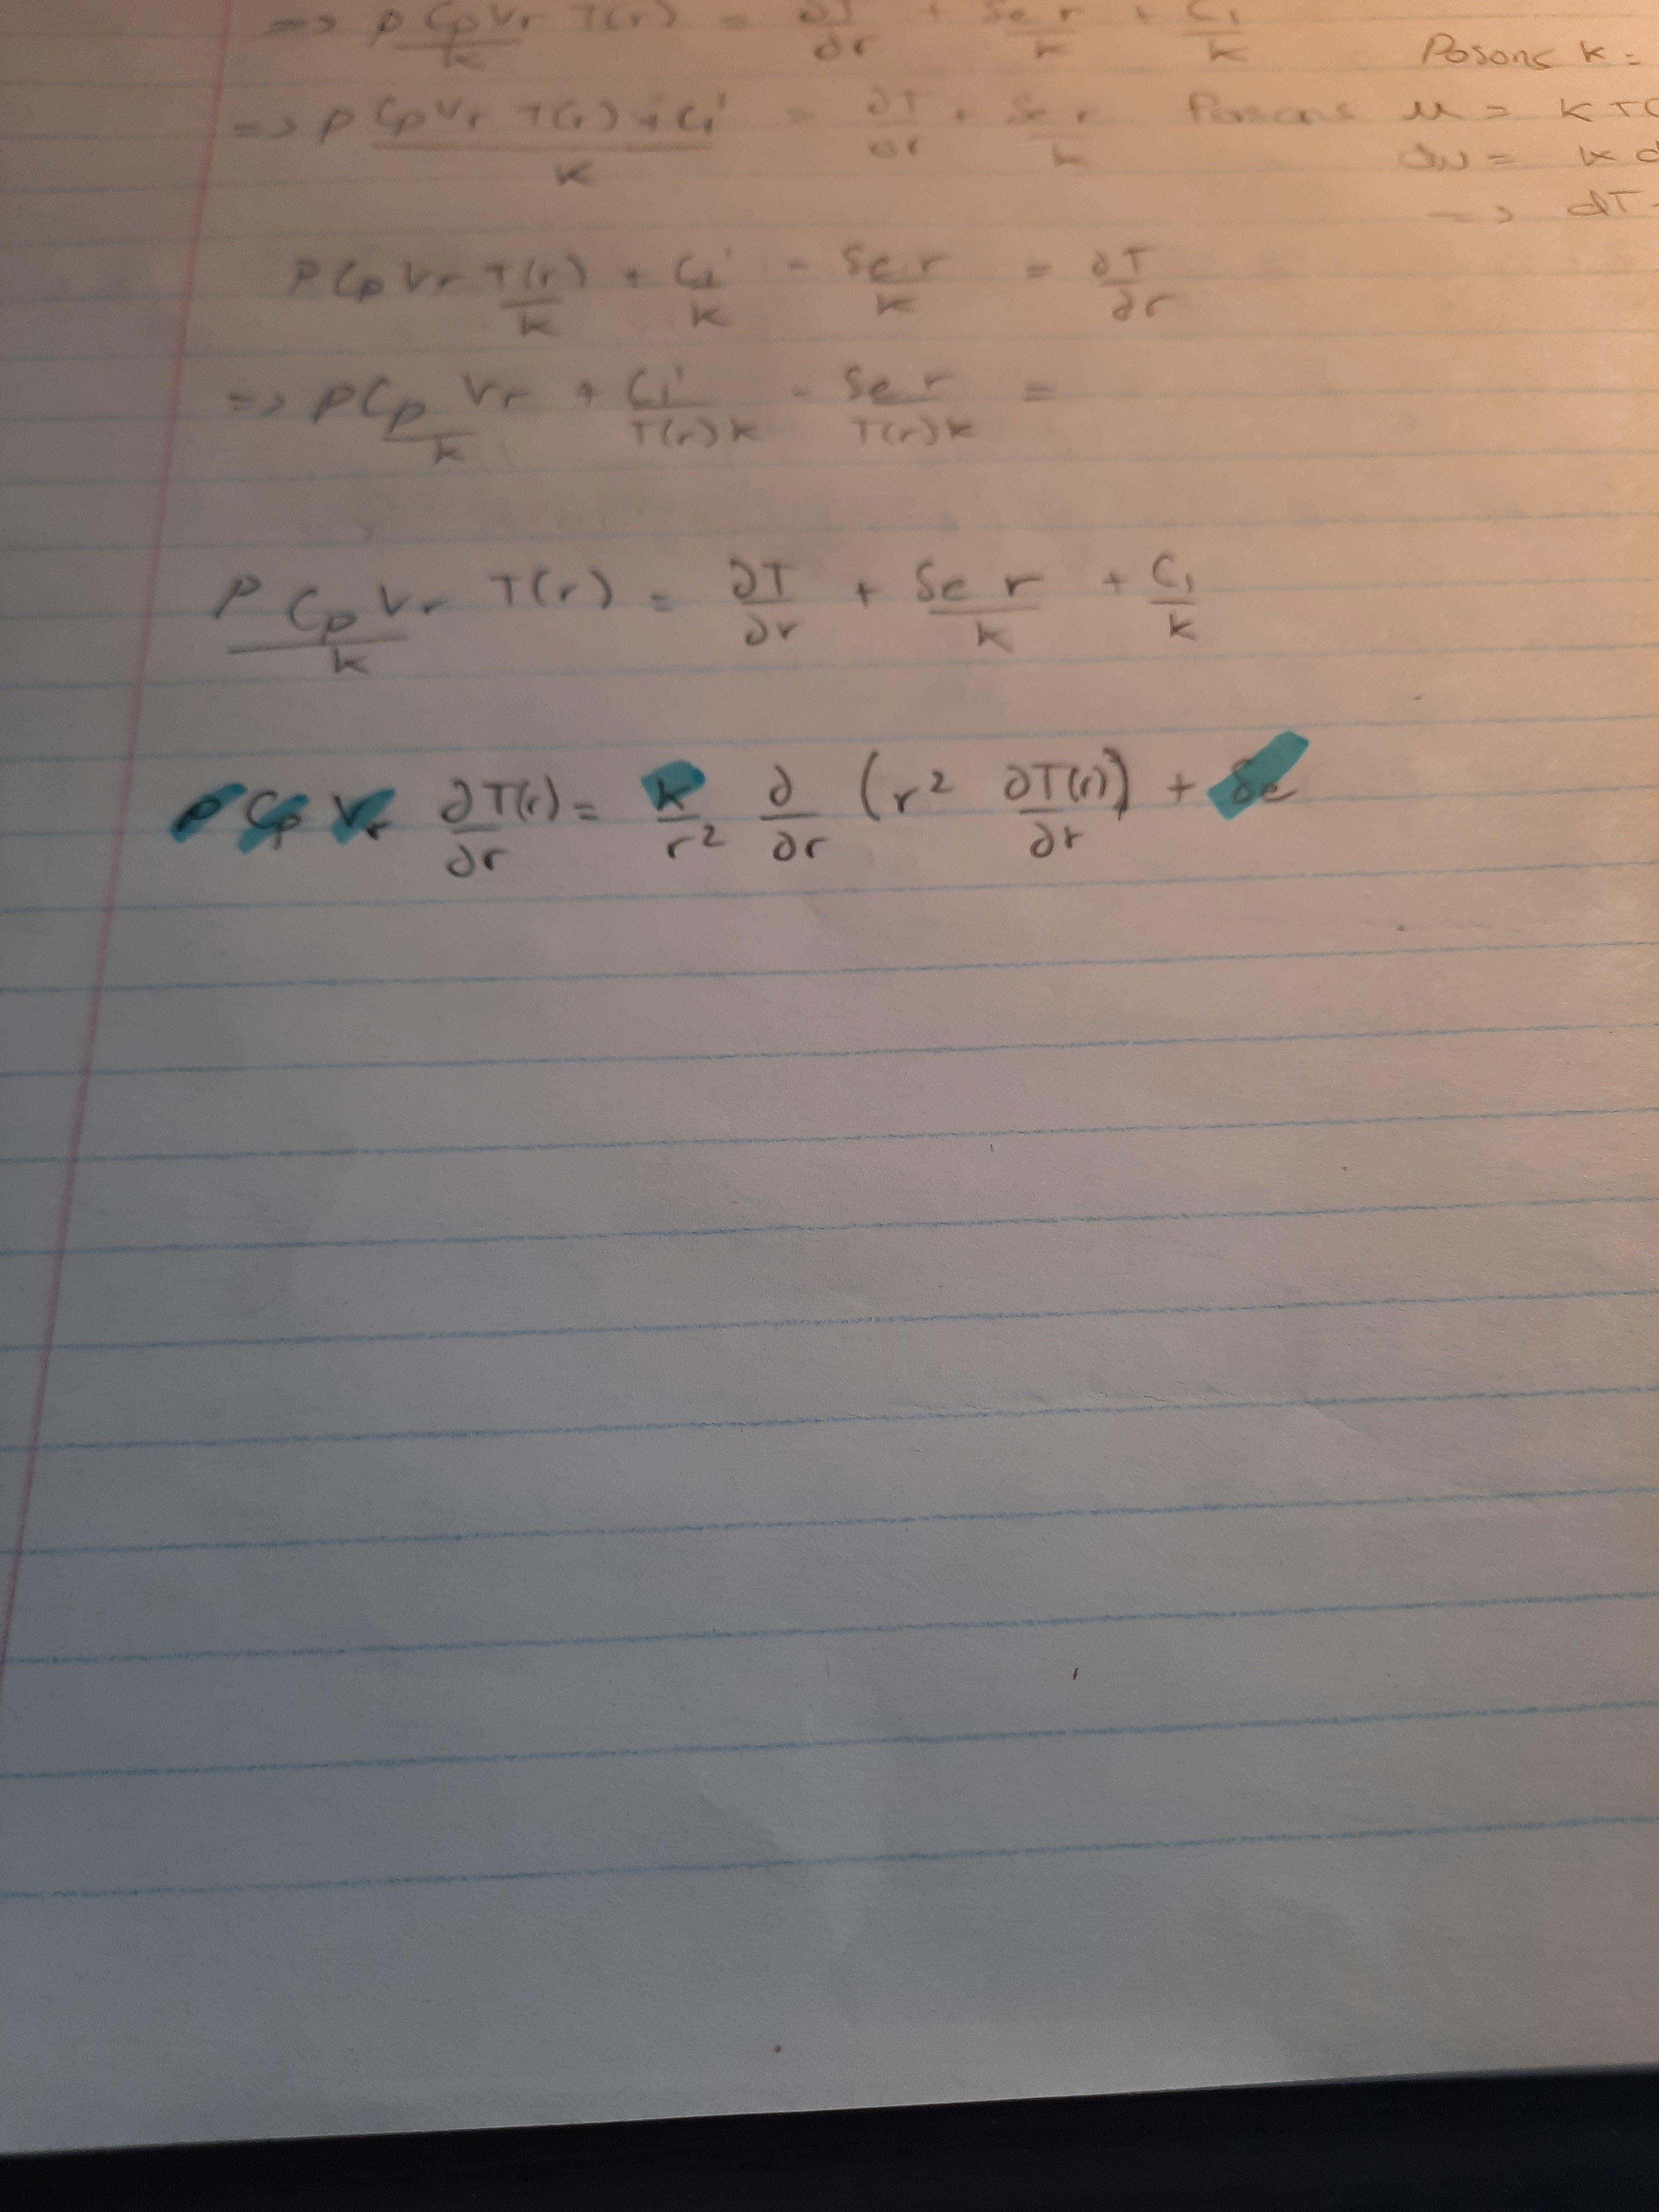 => ρ Cp Vr / k T(r) = ∂T/∂r + Se r/k + C1/k
Posons k =
=> ρ (Cp Vr T(r) + C1')/k = ∂T/∂r + Se r/k Posons u = k T(
du = k d
=> dT =
ρ Cp Vr T(r)/k + C1'/k - Se r/k = ∂T/∂r
=> ρ Cp/k Vr + C1'/(T(r) k) - Se r/(T(r) k) =
ρ Cp Vr/k T(r) = ∂T/∂r + Se r/k + C1/k
ρ Cp Vr ∂T(r)/∂r = k/r² ∂/∂r (r² ∂T(r)/∂r) + Se